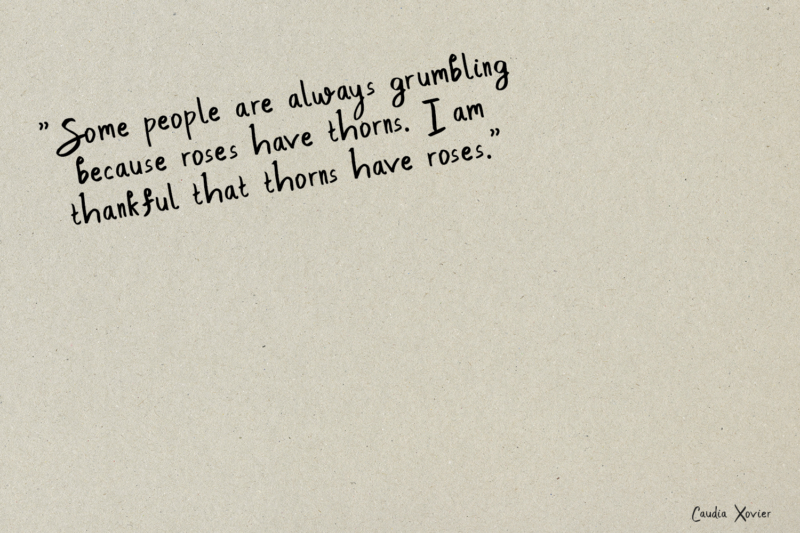 ” Some people are always grumbling
because roses have thorns. I am
thankful that thorns have roses.”
Caudia Xovier